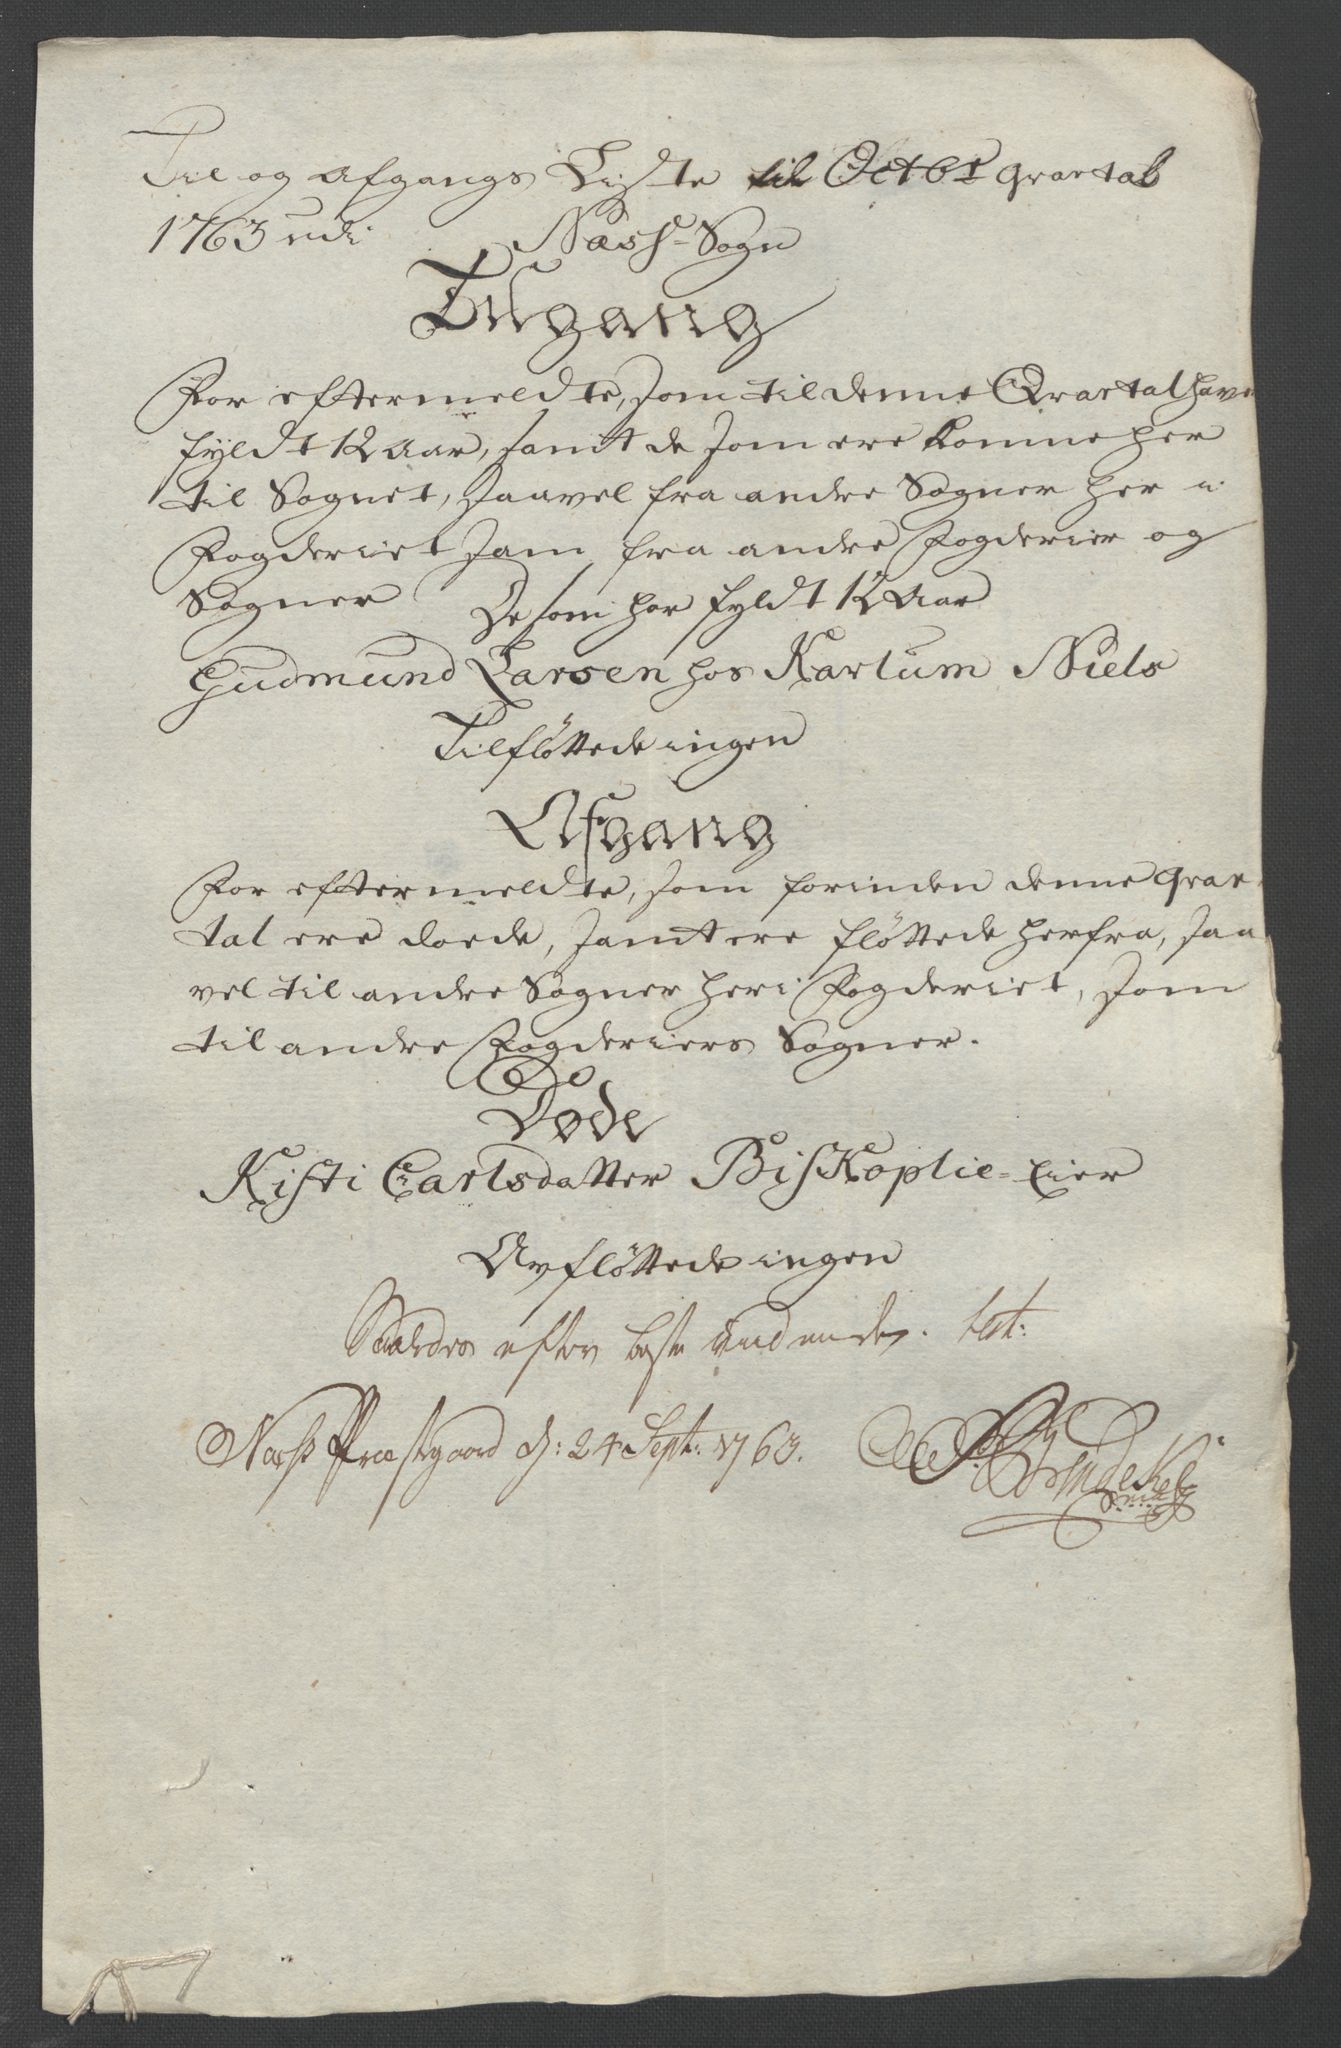 Til og Afgangs Liste til Octbr Qvartal
1763 udi Næss-Sogn
Tilgang
For eftermeldte, som til denne Qvartal have
fyldt 12 Aar, samt de som ere komne her
til Sognet, saavel fra andre Sogner her i
Fogderiet som fra andre Fogderier og
Sogner De som har fyldt 12 Aar
Gudmund Larsen hos Karlum Niels
Tilfløttede ingen
Afgang
For eftermeldte, som forinden denne Qvar-
tal ere døede, samt ere fløttede herfra, saa
vel til andre Sogner her i Fogderiet, som
til andre Fogderiers Sogner.
Døde
Kisti Carlsdatter Biskoplie-Eier
Avfløttede ingen
Saaledes efter beste Vidende. test:
Næss Præstgaard d: 24 Sept: 1763.